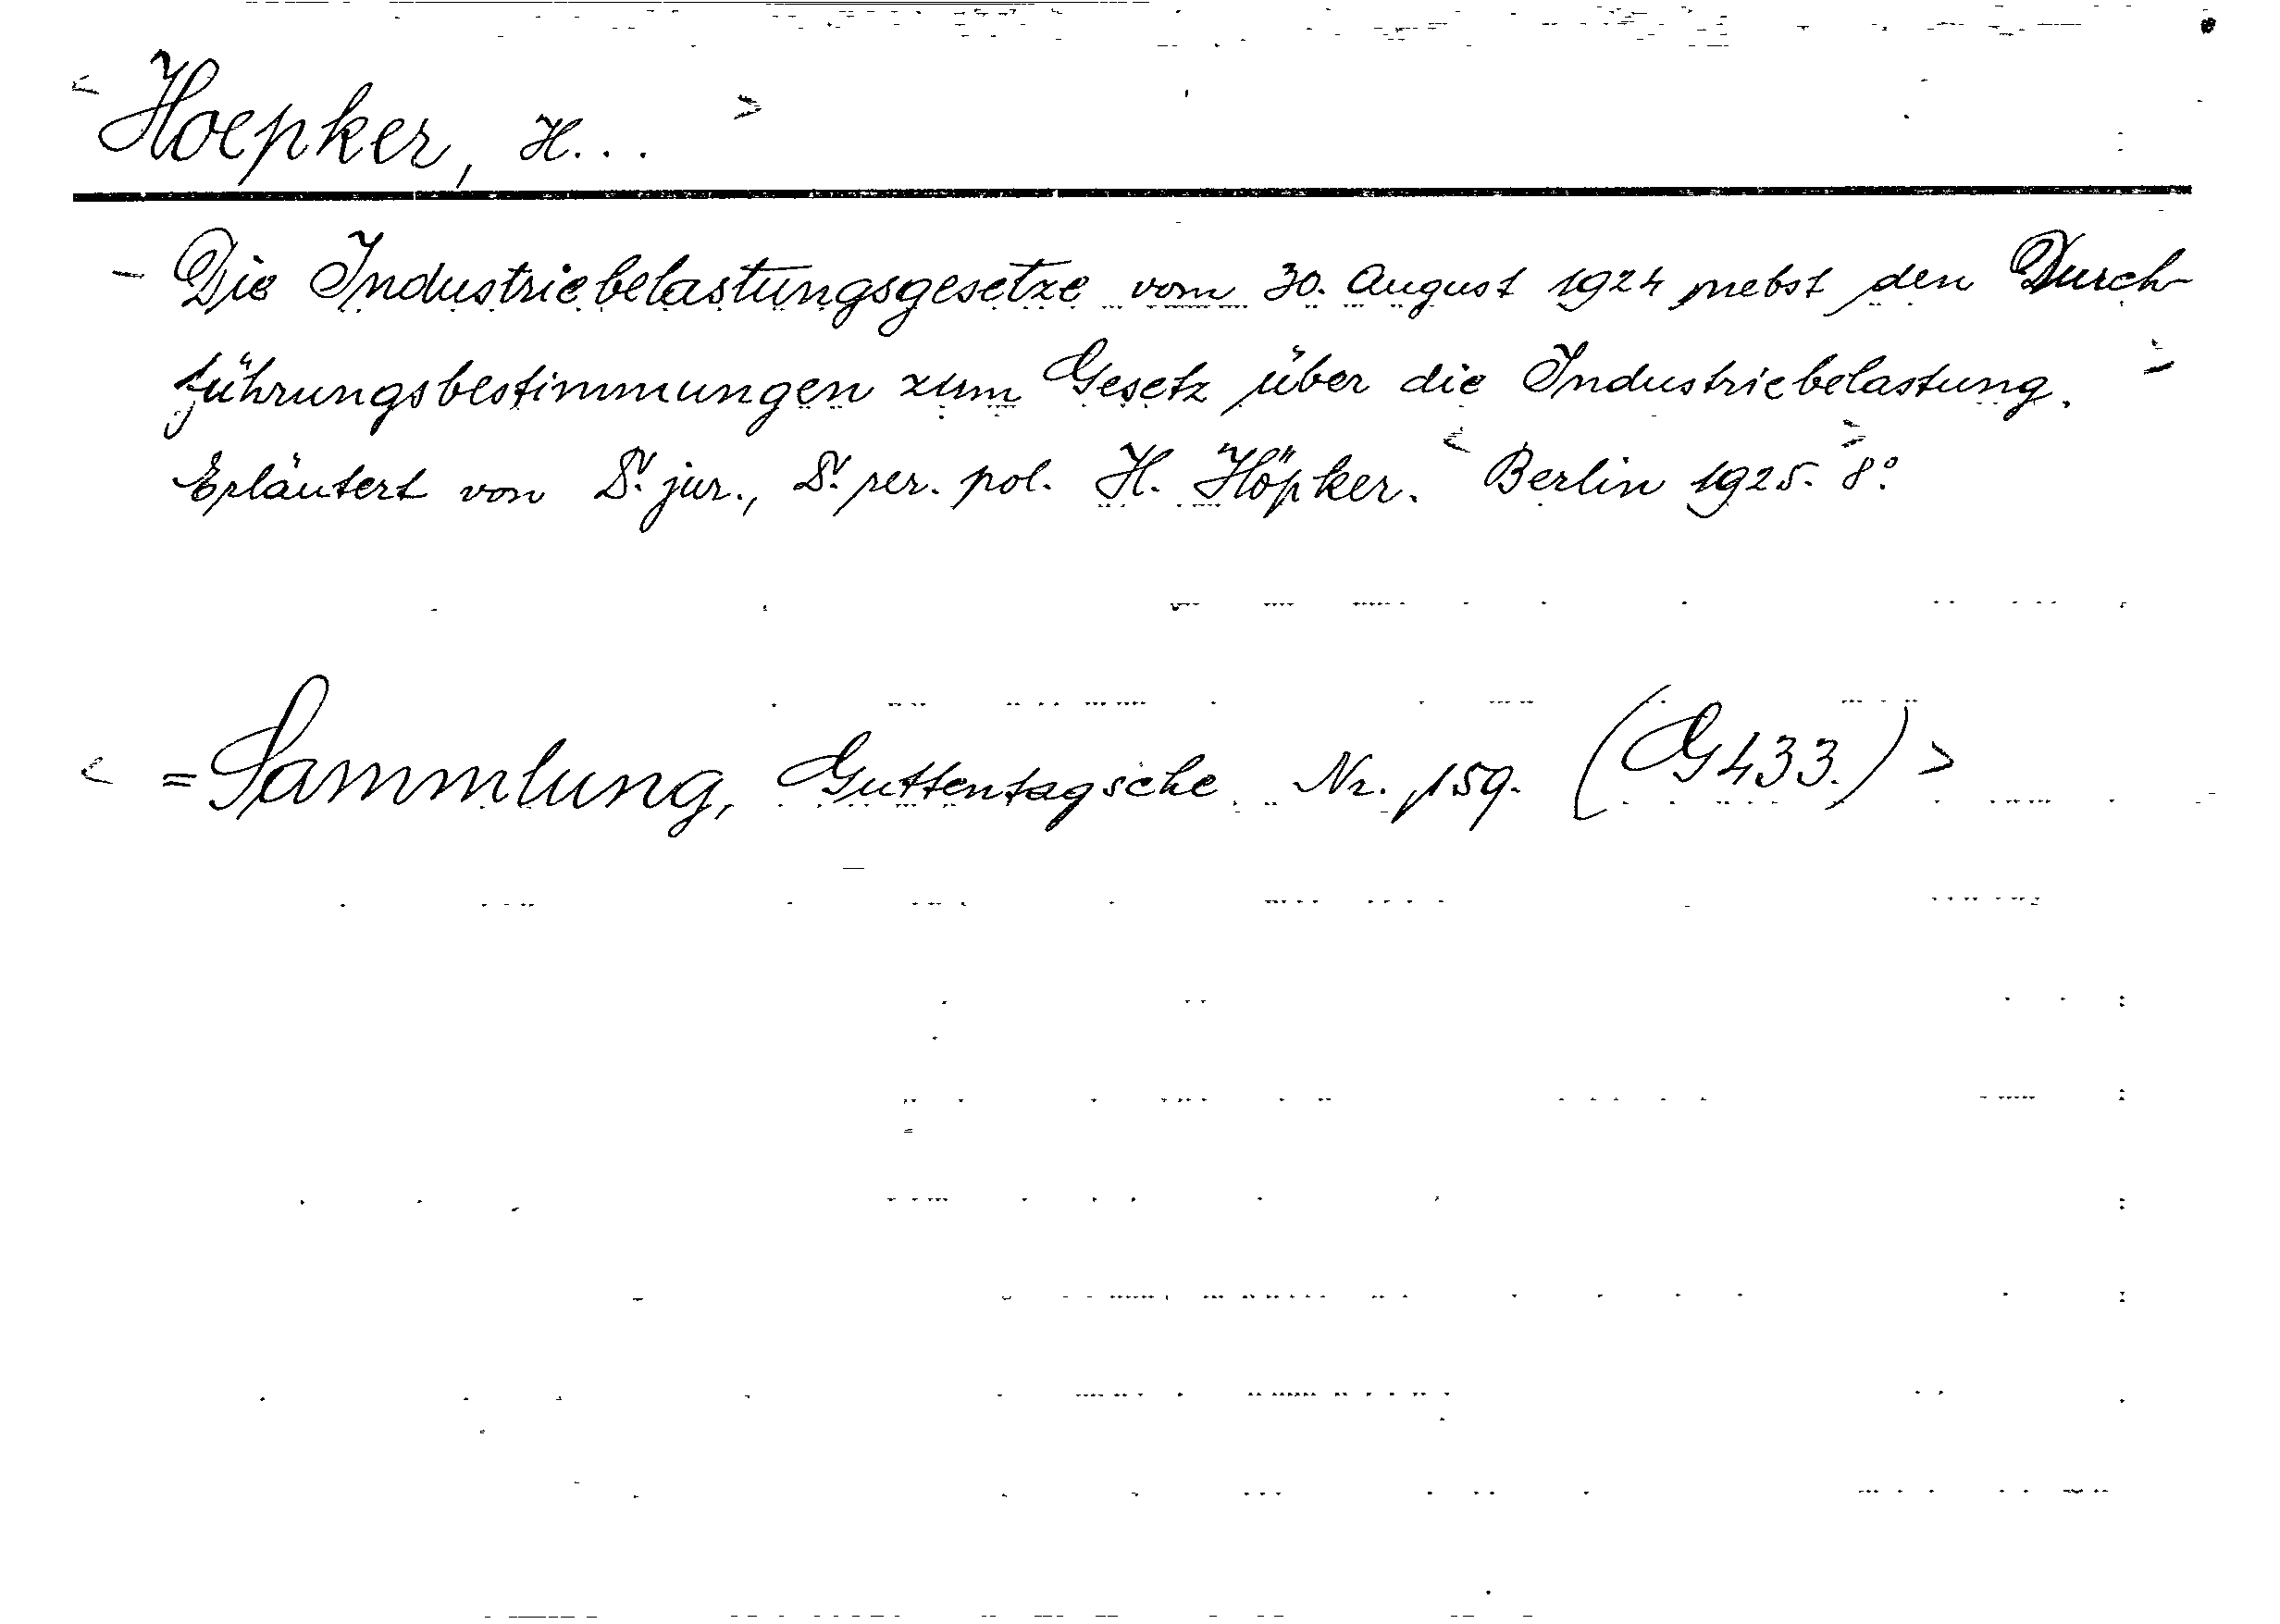 < Hoepker, H... >
- Die Industriebelastungsgesetze vom 30. August 1924 nebst den Durch-
führungsbestimmungen zum Gesetz über die Industriebelastung. >
Erläutert von Dr. jur., Dr. rer. pol. H. Höpker. < Berlin 1925. > 8°.
< = Sammlung, Guttentagsche Nr. 159. (G 433.) >